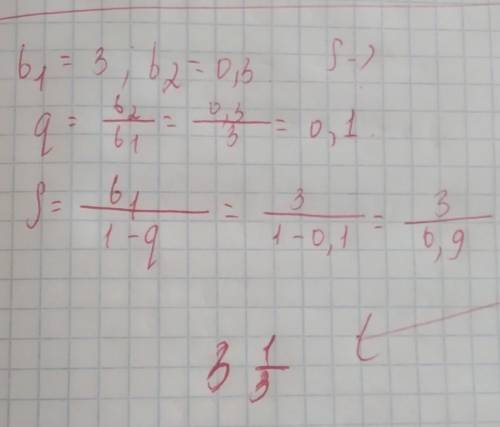 b₁ = 3 ; b₂ = 0,3 S-?
q = b₂/b₁ = 0,3/3 = 0,1
S = b₁/(1-q) = 3/(1-0,1) = 3/0,9
3 1/3